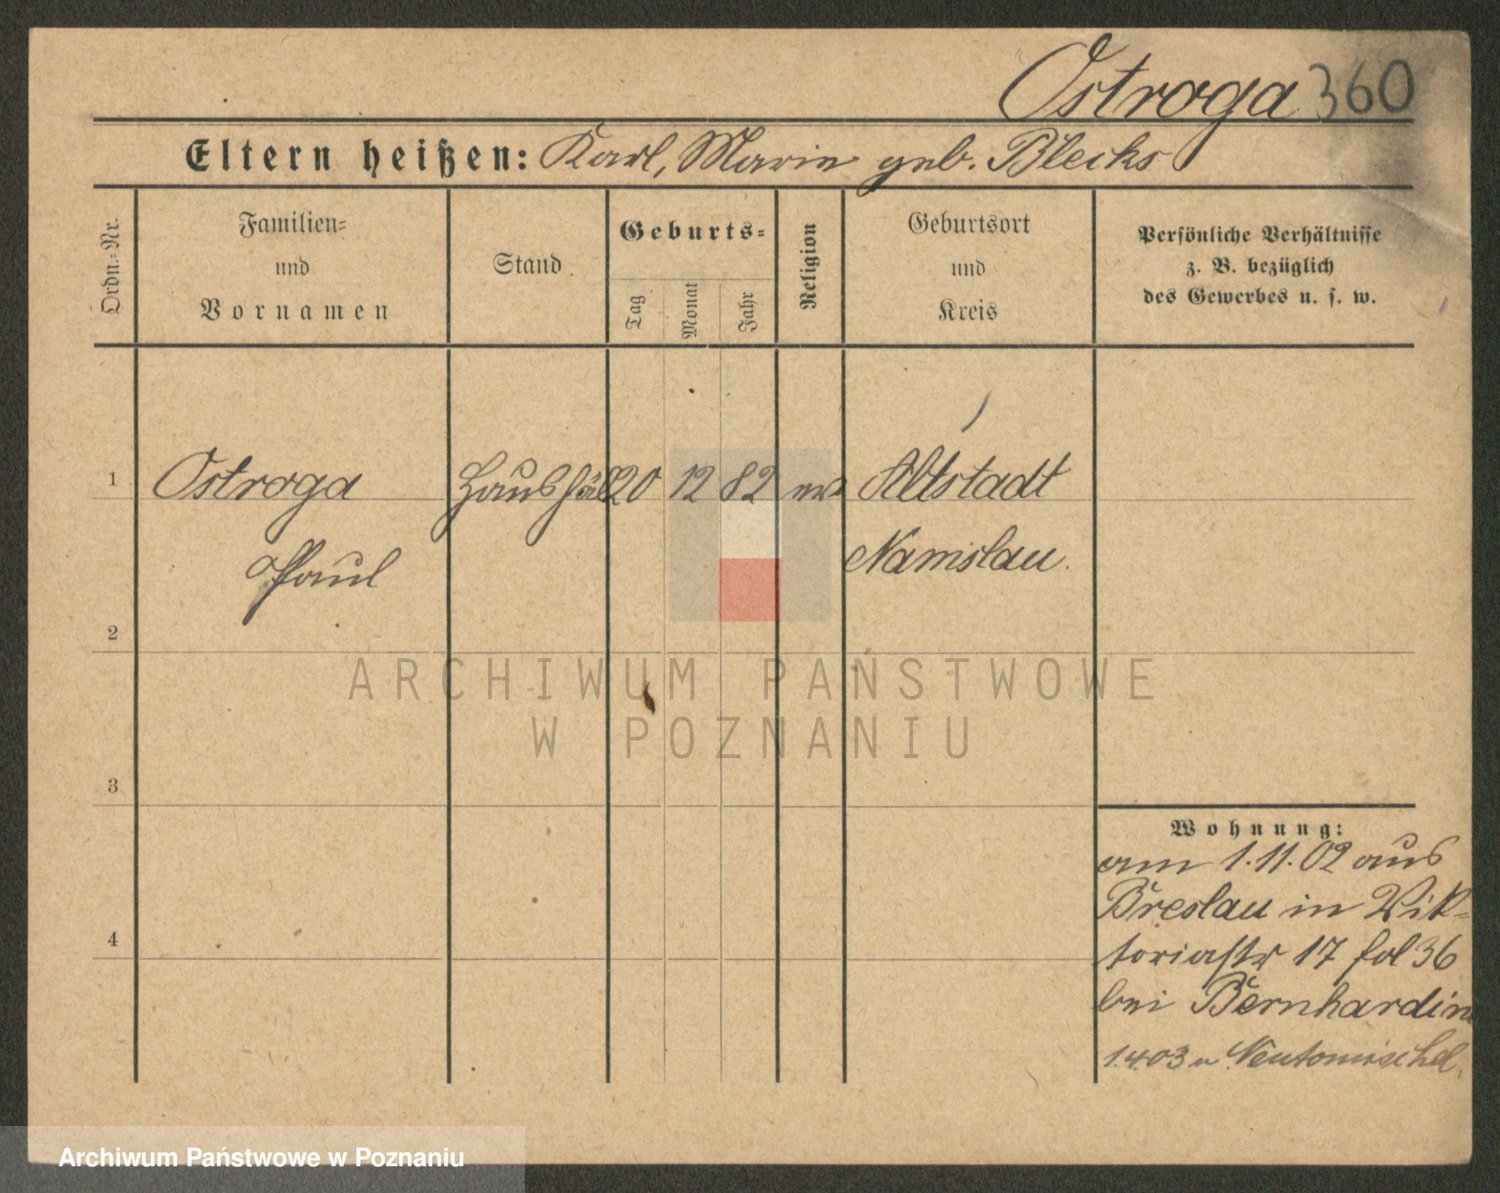 Ostroga 360
Eltern heißen: Karl, Marie geb. Blecks
Ordn.=Nr.
Familien=
und
Vornamen
Stand
Geburts=
Tag
Monat
Jahr
Religion
Geburtsort
und
Kreis
Persönliche Verhältnisse
z. B. bezüglich
des Gewerbes u. s. w.
1 Ostroga Haushäl 20 12 82 ev Altstadt
Paul Namslau.
2
ARCHIWUM PAŃSTWOWE
W POZNANIU
3
Wohnung:
am 1.11.02 aus
Breslau in Vik=
toriastr 17 fol 36
4
bei Bernhardin
1.4.03 n Neutomischel.
Archiwum Państwowe w Poznaniu